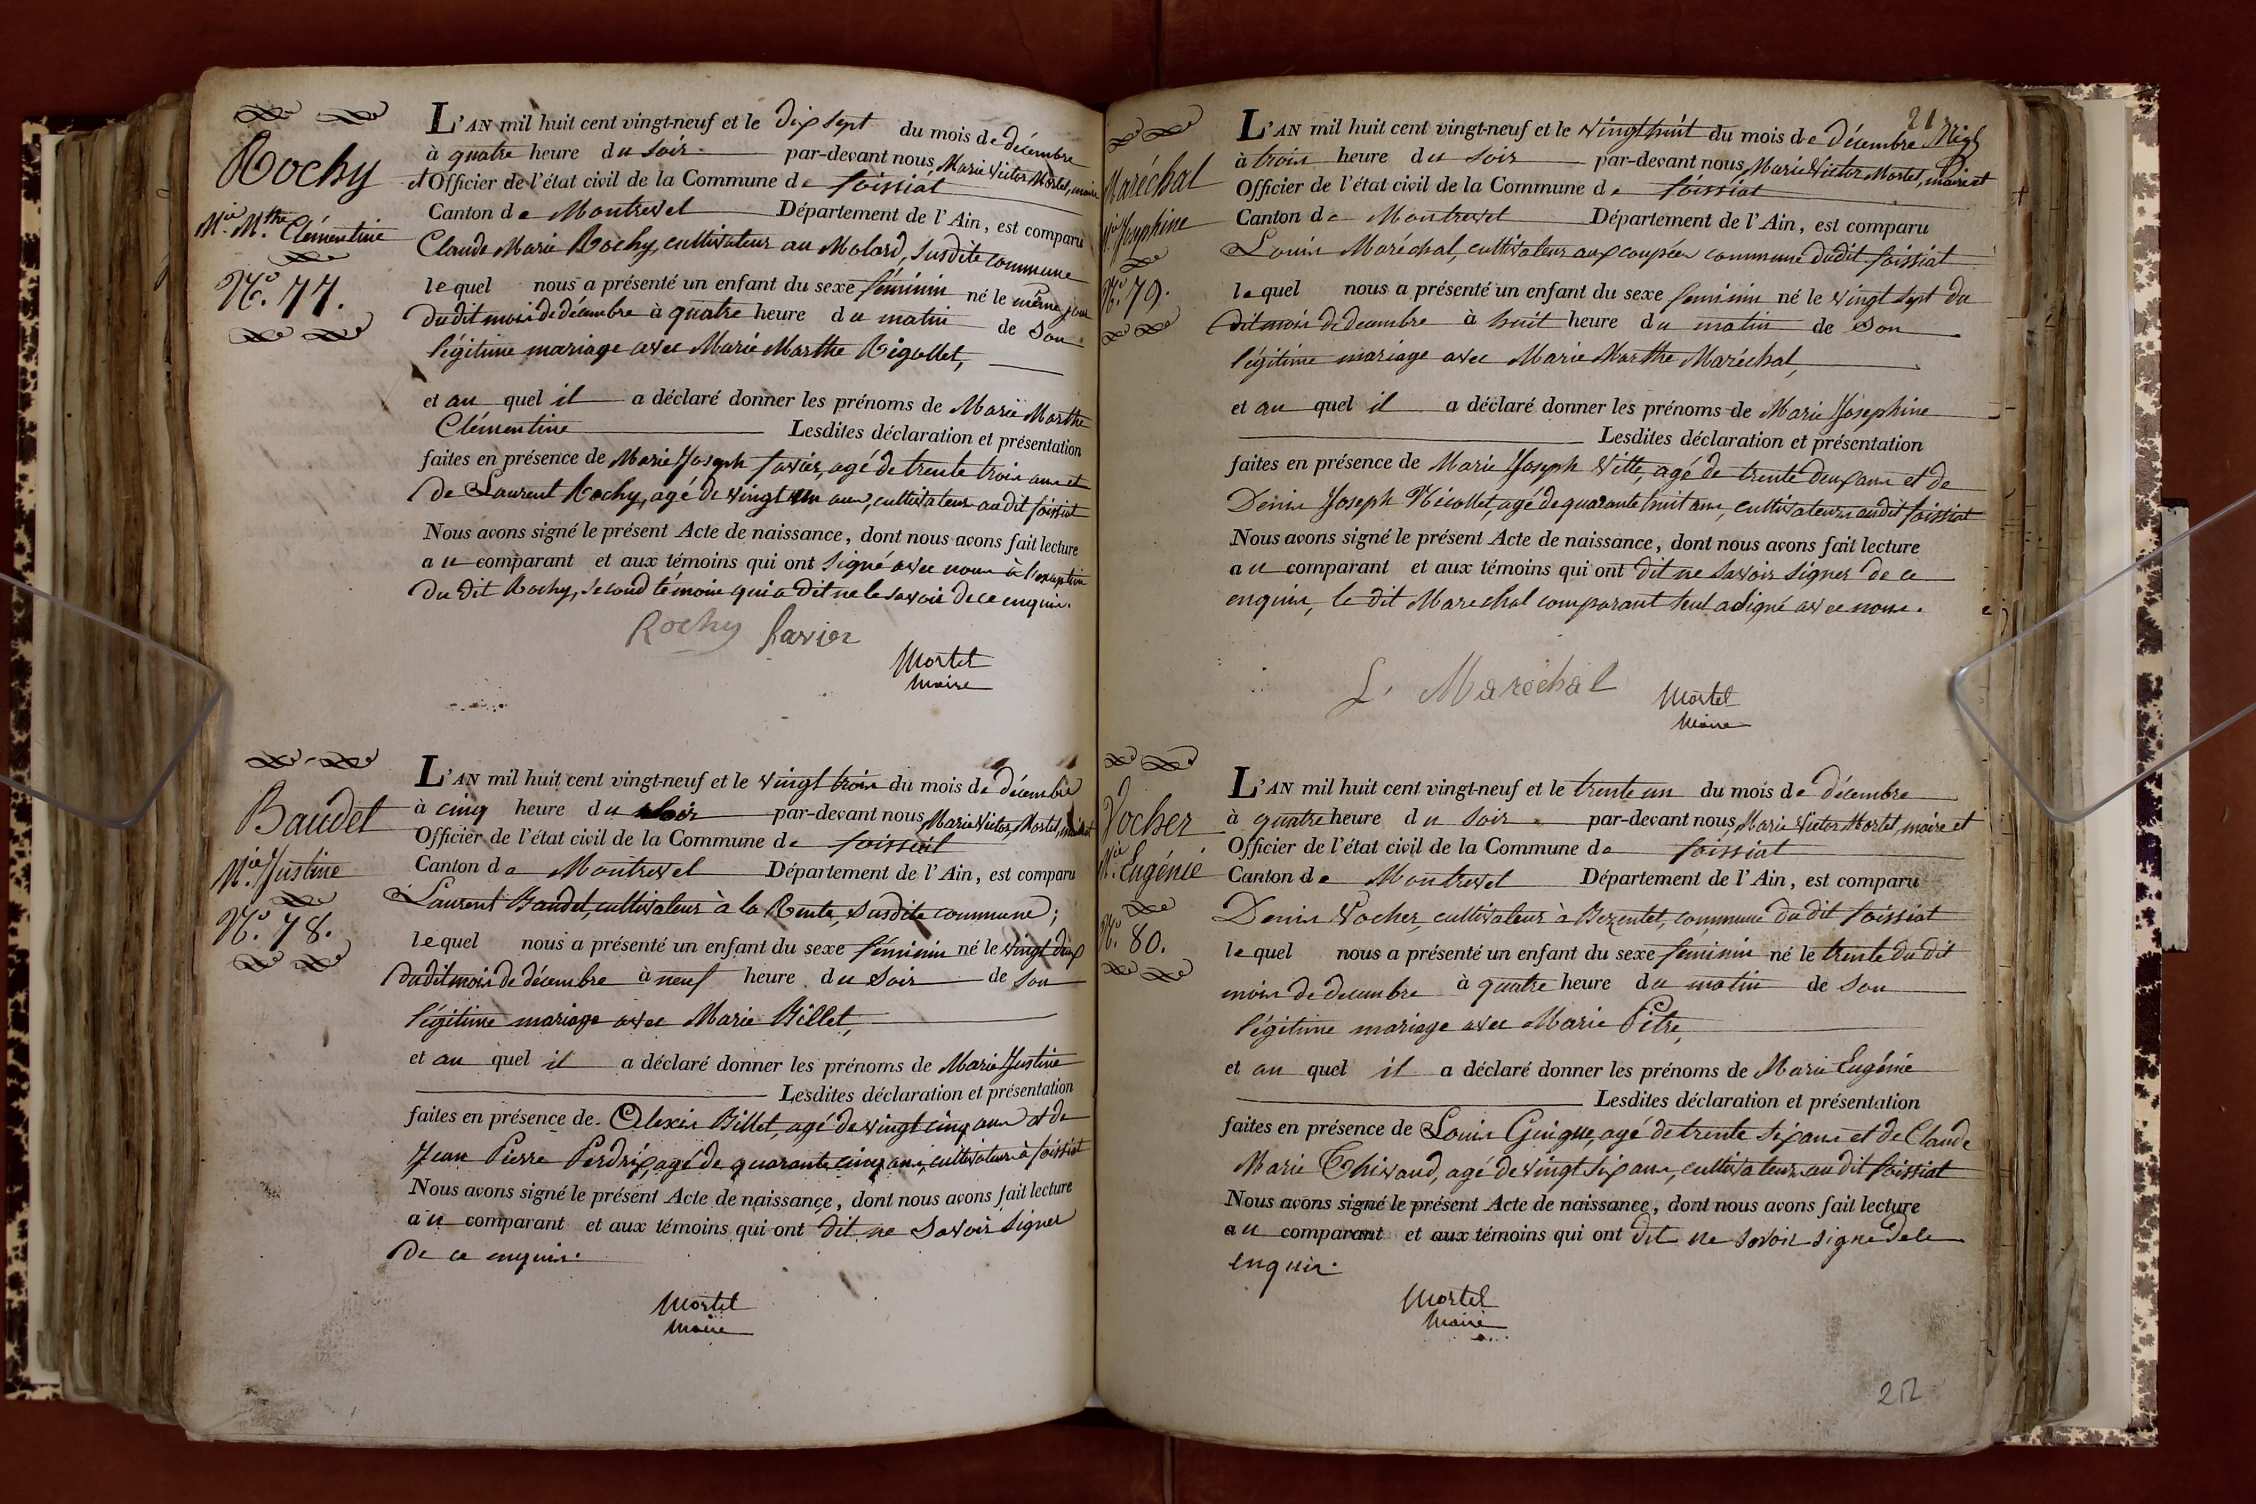 Rochy
Mie. Mthe. Clémentine
No. 77.
L'AN mil huit cent vingt-neuf et le dix sept du mois de décembre
à quatre heure du soir par-devant nous, Marie Victor Mortel, maire
et Officier de l'état civil de la Commune de foissiat
Canton de Montrevel Département de l'Ain, est comparu
Claude Marie Rochy, cultivateur au Molard, susdite commune
lequel nous a présenté un enfant du sexe féminin né le même jour
dudit mois de décembre à quatre heure du matin de son
légitime mariage avec Marie Marthe Rigollet,
et au quel il a déclaré donner les prénoms de Marie Marthe
Clémentine Lesdites déclaration et présentation
faites en présence de Marie Joseph favier, agé de trente trois ans et
de Laurent Rochy, agé de vingt un ans, cultivateurs audit foissiat
Nous avons signé le présent Acte de naissance, dont nous avons fait lecture
au comparant et aux témoins qui ont signé avec nous à l'exception
du dit Rochy, second témoin qui a dit ne le savoir de ce enquis.
Rochy favier
Mortel
Maire
Baudet
Mie. Justine
No. 78.
L'AN mil huit cent vingt-neuf et le vingt trois du mois de décembre
à cinq heure du soir par-devant nous, Marie Victor Mortel,
Officier de l'état civil de la Commune de foissiat
Canton de Montrevel Département de l'Ain, est comparu
Laurent Baudet, cultivateur à la Rente, susdite commune;
lequel nous a présenté un enfant du sexe féminin né le vingt deux
dudit mois de décembre à neuf heure du soir de son
légitime mariage avec Marie Billet,
et au quel il a déclaré donner les prénoms de Marie Justine
Lesdites déclaration et présentation
faites en présence de Alexis Billet, agé de vingt cinq ans et de
Jean Pierre Perdrix, agé de quarante cinq ans, cultivateurs à foissiat
Nous avons signé le présent Acte de naissance, dont nous avons fait lecture
au comparant et aux témoins qui ont dit ne savoir signer
de ce enquis.
Mortel
Maire
Maréchal
Mie Josephine
No. 79.
L'AN mil huit cent vingt-neuf et le vingt huit du mois de décembre
à trois heure du soir par-devant nous, Marie Victor Mortel, maire et
Officier de l'état civil de la Commune de foissiat
Canton de Montrevel Département de l'Ain, est comparu
Louis Maréchal, cultivateur aux coupées commune dudit foissiat
lequel nous a présenté un enfant du sexe feminin né le vingt sept du
dit mois de decembre à huit heure du matin de son
légitime mariage avec Marie Marthe Maréchal,
et au quel il a déclaré donner les prénoms de Marie Josephine
Lesdites déclaration et présentation
faites en présence de Marie Joseph Vitte, agé de trente deux ans et de
Denis Joseph Nicollet, agé de quarante huit ans, cultivateurs audit foissiat
Nous avons signé le présent Acte de naissance, dont nous avons fait lecture
au comparant et aux témoins qui ont dit ne savoir signer de ce
enquis, le dit Marechal comparant seul a signé avec nous.
L. Maréchal
Mortel
Maire
Vocher
Mie. Eugénie
No. 80.
L'AN mil huit cent vingt-neuf et le trente un du mois de décembre
à quatre heure du soir par-devant nous, Marie Victor Mortel, maire et
Officier de l'état civil de la Commune de foissiat
Canton de Montrevel Département de l'Ain, est comparu
Denis Vocher, cultivateur à Bezentet, commune du dit foissiat
lequel nous a présenté un enfant du sexe feminin né le trente du dit
mois de decembre à quatre heure du matin de son
légitime mariage avec Marie Pitre,
et au quel il a déclaré donner les prénoms de Marie Eugénie
Lesdites déclaration et présentation
faites en présence de Louis Guigue, agé de trente six ans et de Claude
Marie Thivaud, agé de vingt six ans, cultivateurs au dit foissiat
Nous avons signé le présent Acte de naissance, dont nous avons fait lecture
au comparant et aux témoins qui ont dit ne savoir signé de ce
enquis.
Mortel
Maire